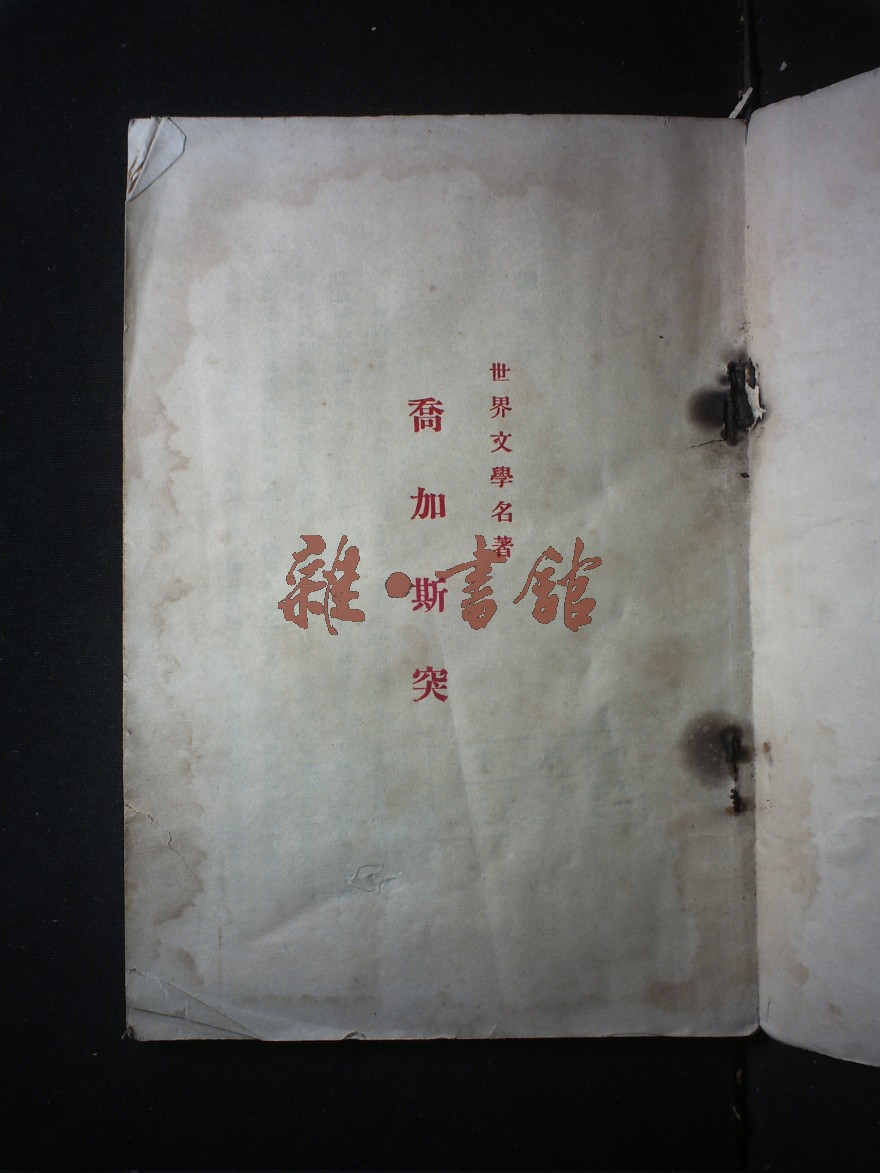 世界文學名著
喬加斯突
雜·書館